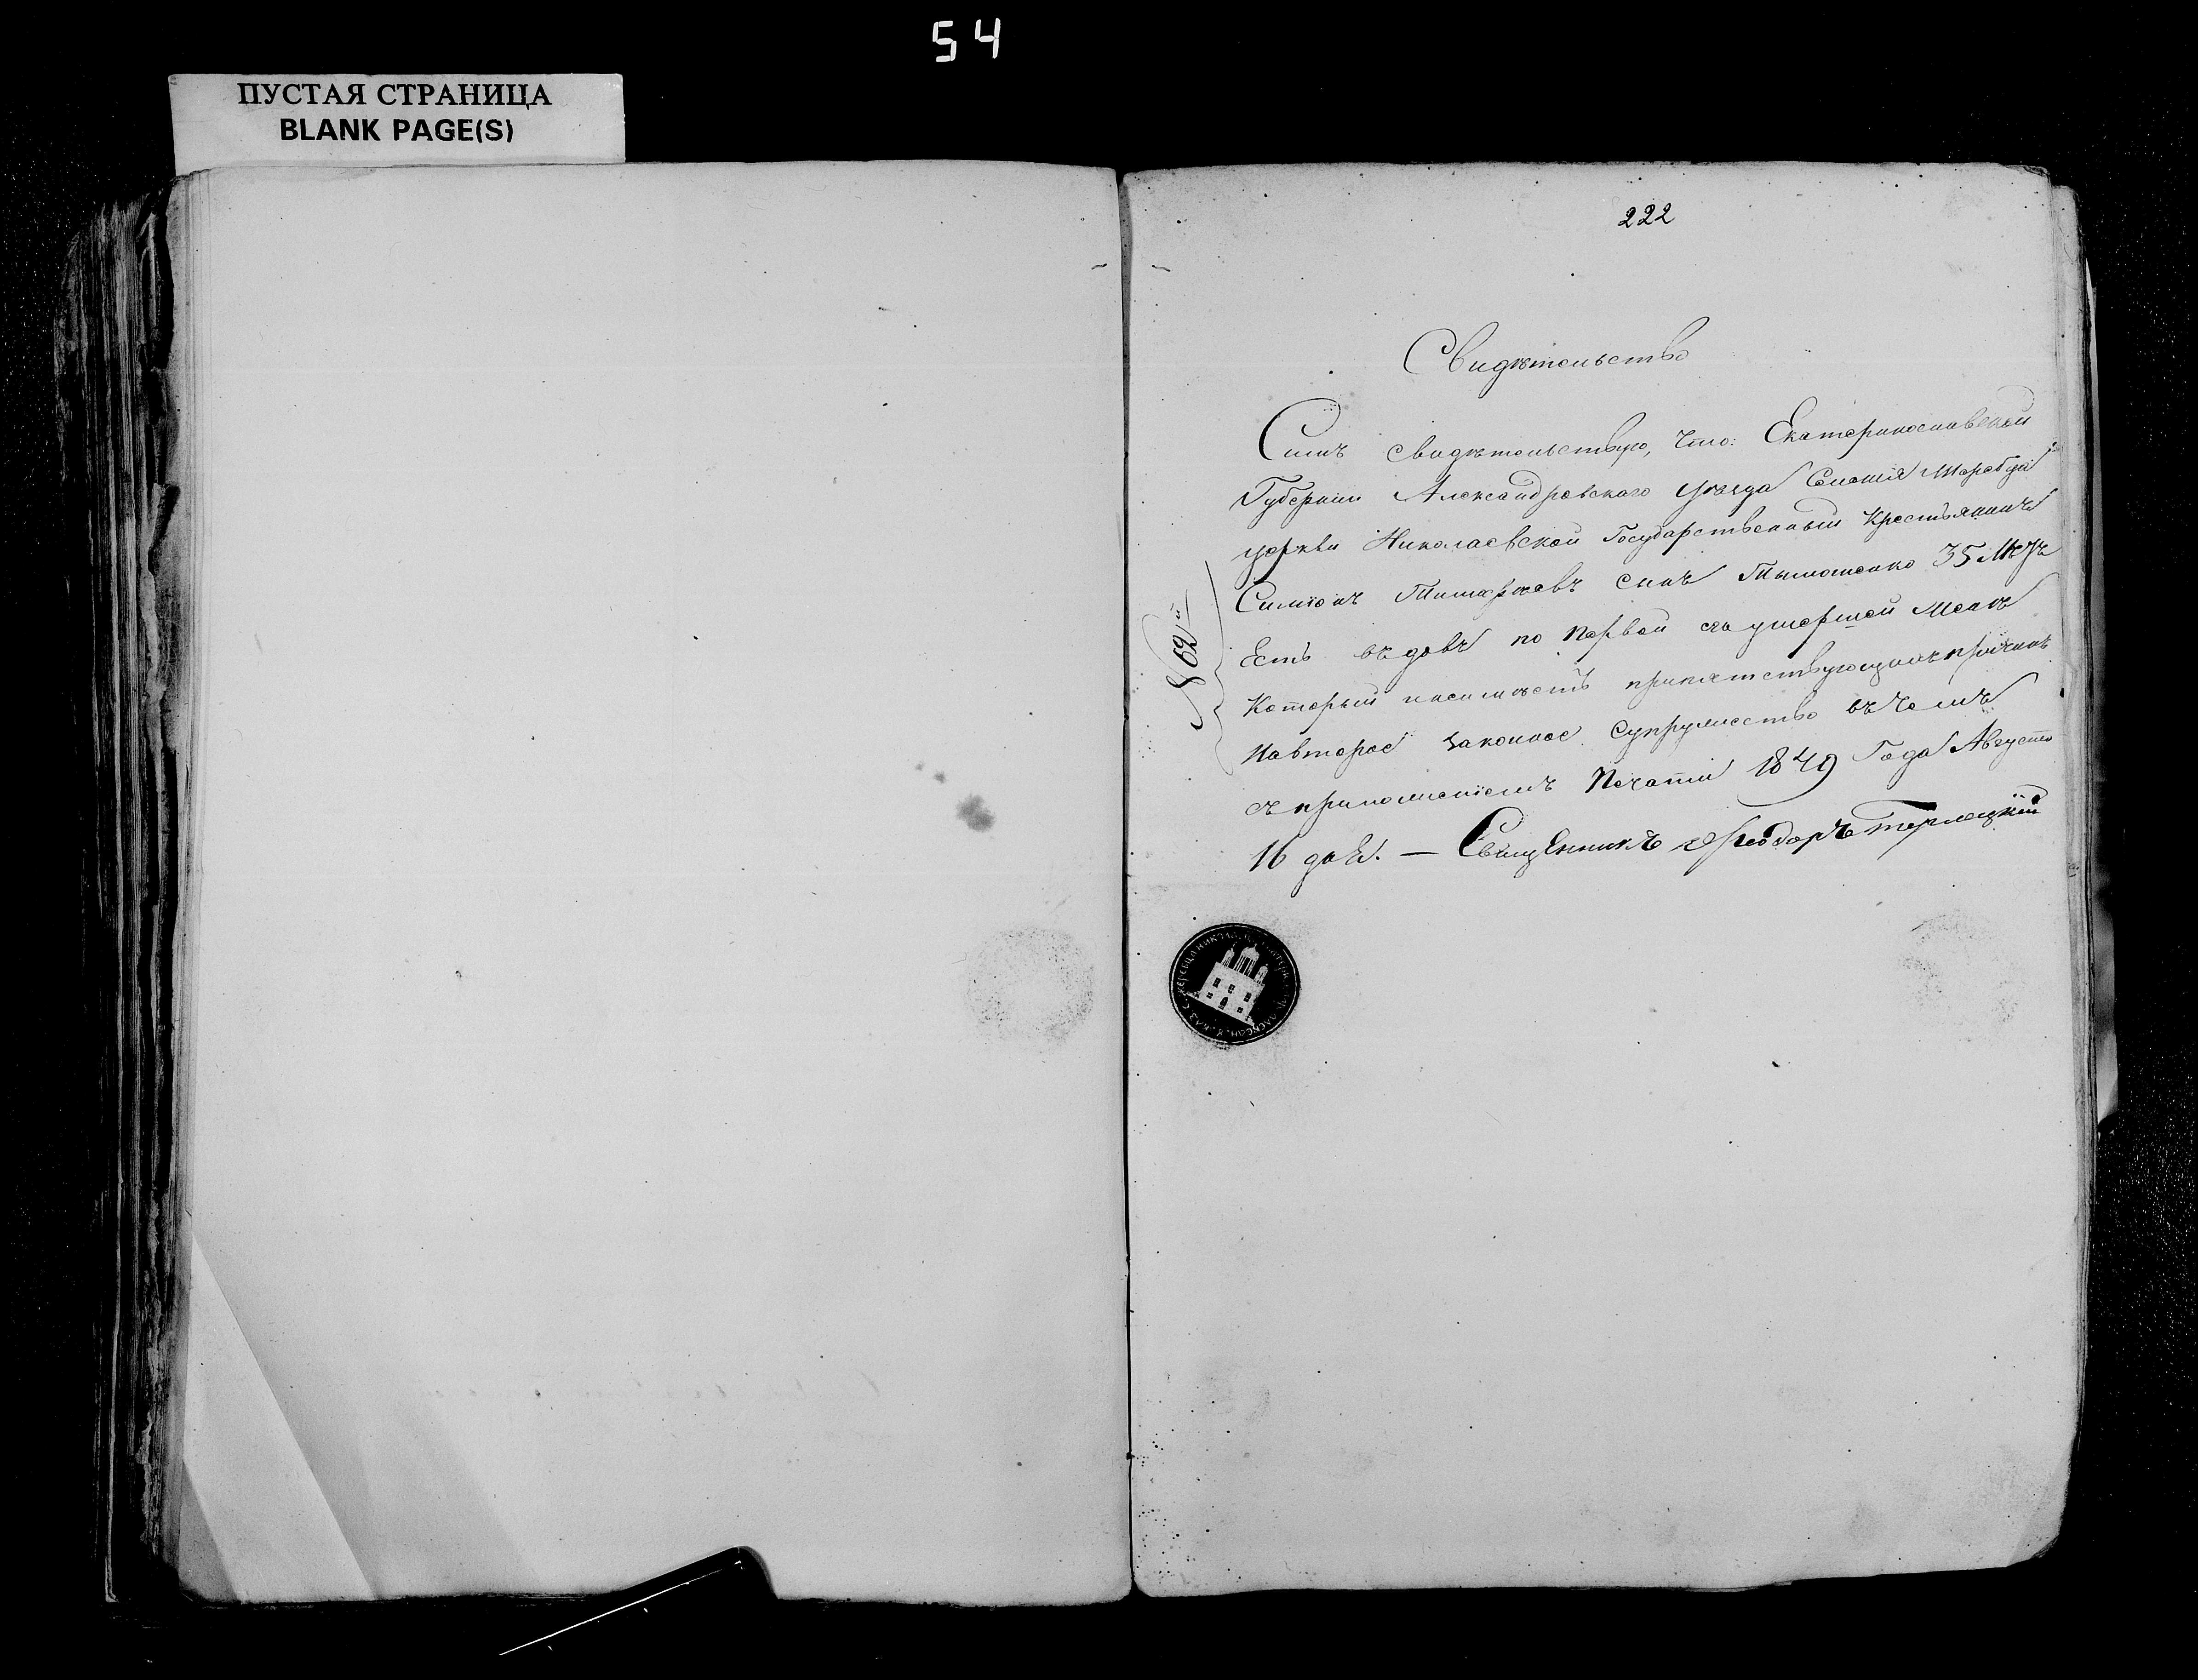 54
ПУСТАЯ СТРАНИЦА
BLANK PAGE(S)
222
Свидѣтельство
Симъ свидѣтельствую, что: Екатеринославской
Губернии Александровскаго уѣзда Селенія Жеребца
церкви Николаевской Государственный Крестьянинъ
Симіонъ сынъ Тимошенко 35 лѣтъ
Есть вдовъ по первой умершей женѣ
Который неимѣетъ препятствующихъ причинъ
навторое законное супружество въ чемъ
съ приложеніемъ Печати 1849 Года Августа
16 дня. — Священникъ Ѳеодоръ Терлецкій
№ 62й